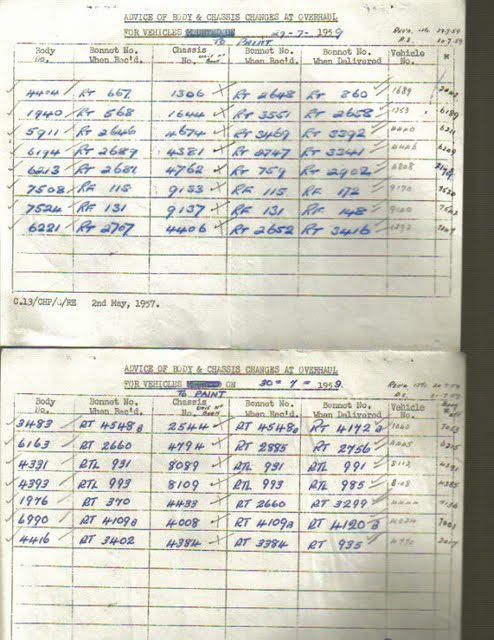 ADVICE OF BODY & CHASSIS CHANGES AT OVERHAUL
FOR VEHICLES 29-7- 1959
TO PAINT
Body No. Bonnet No. When Rec'd. Chassis No. Bonnet No. When Rec'd. Bonnet No. When Delivered Vehicle No.
4404 RT 667 1306 RT 2648 RT 860 1689
1940 RT 568 1644 RT 3551 RT 2658 1353 6189
5911 RT 2646 4674 RT 3469 RT 3392 4440 6211
6194 RT 2689 4381 RT 2747 RT 3341 4446 6209
6213 RT 2681 4762 RT 759 RT 2902 4808
7508 RF 115 9133 RF 115 RF 172 9170 7520
7524 RF 131 9137 RF 131 RF 148 9160
6221 RT 2707 4406 RT 2652 RT 3416 4292
C.13/CHP/J/RE 2nd May, 1957.
ADVICE OF BODY & CHASSIS CHANGES AT OVERHAUL
FOR VEHICLES ON 30- 7 - 1959.
TO PAINT
Body No. Bonnet No. When Rec'd. Chassis No. Bonnet No. When Rec'd. Bonnet No. When Delivered Vehicle No.
3483 RT 4548 2544 RT 4548 RT 4172 7053
6163 RT 2660 4794 RT 2885 RT 2756 4445 6215
4331 RTL 931 8089 RTL 931 RTL 991 8112 4391
4393 RTL 993 8109 RTL 993 RTL 985 8108 4385
1976 RT 370 4433 RT 2660 RT 3299 4444
6990 RT 4109 4008 RT 4109 RT 4120 4034 7003
4416 RT 3402 4384 RT 3384 RT 935 4770